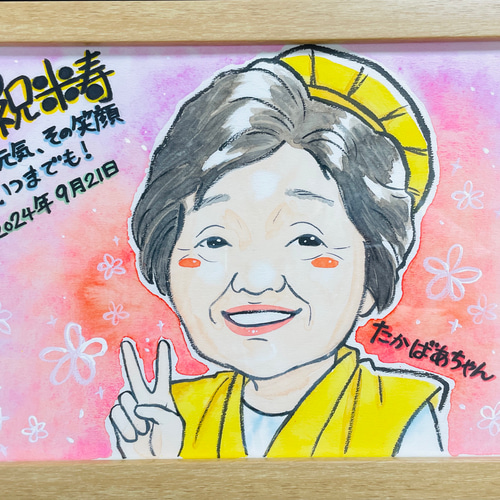 祝米寿
元気、その笑顔
いつまでも！
2024年9月21日
たかばあちゃん